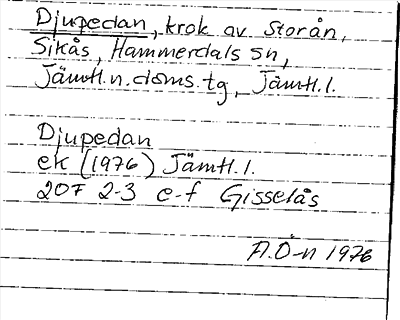 Djupedan, krok av Storån,
Sikås, Hammerdals sn,
Jämtl.n.doms.tg, Jämtl.l.
Djupedan
ek (1976) Jämtl.l.
20F 2-3 e-f Gisselås
A.Ö-n 1976